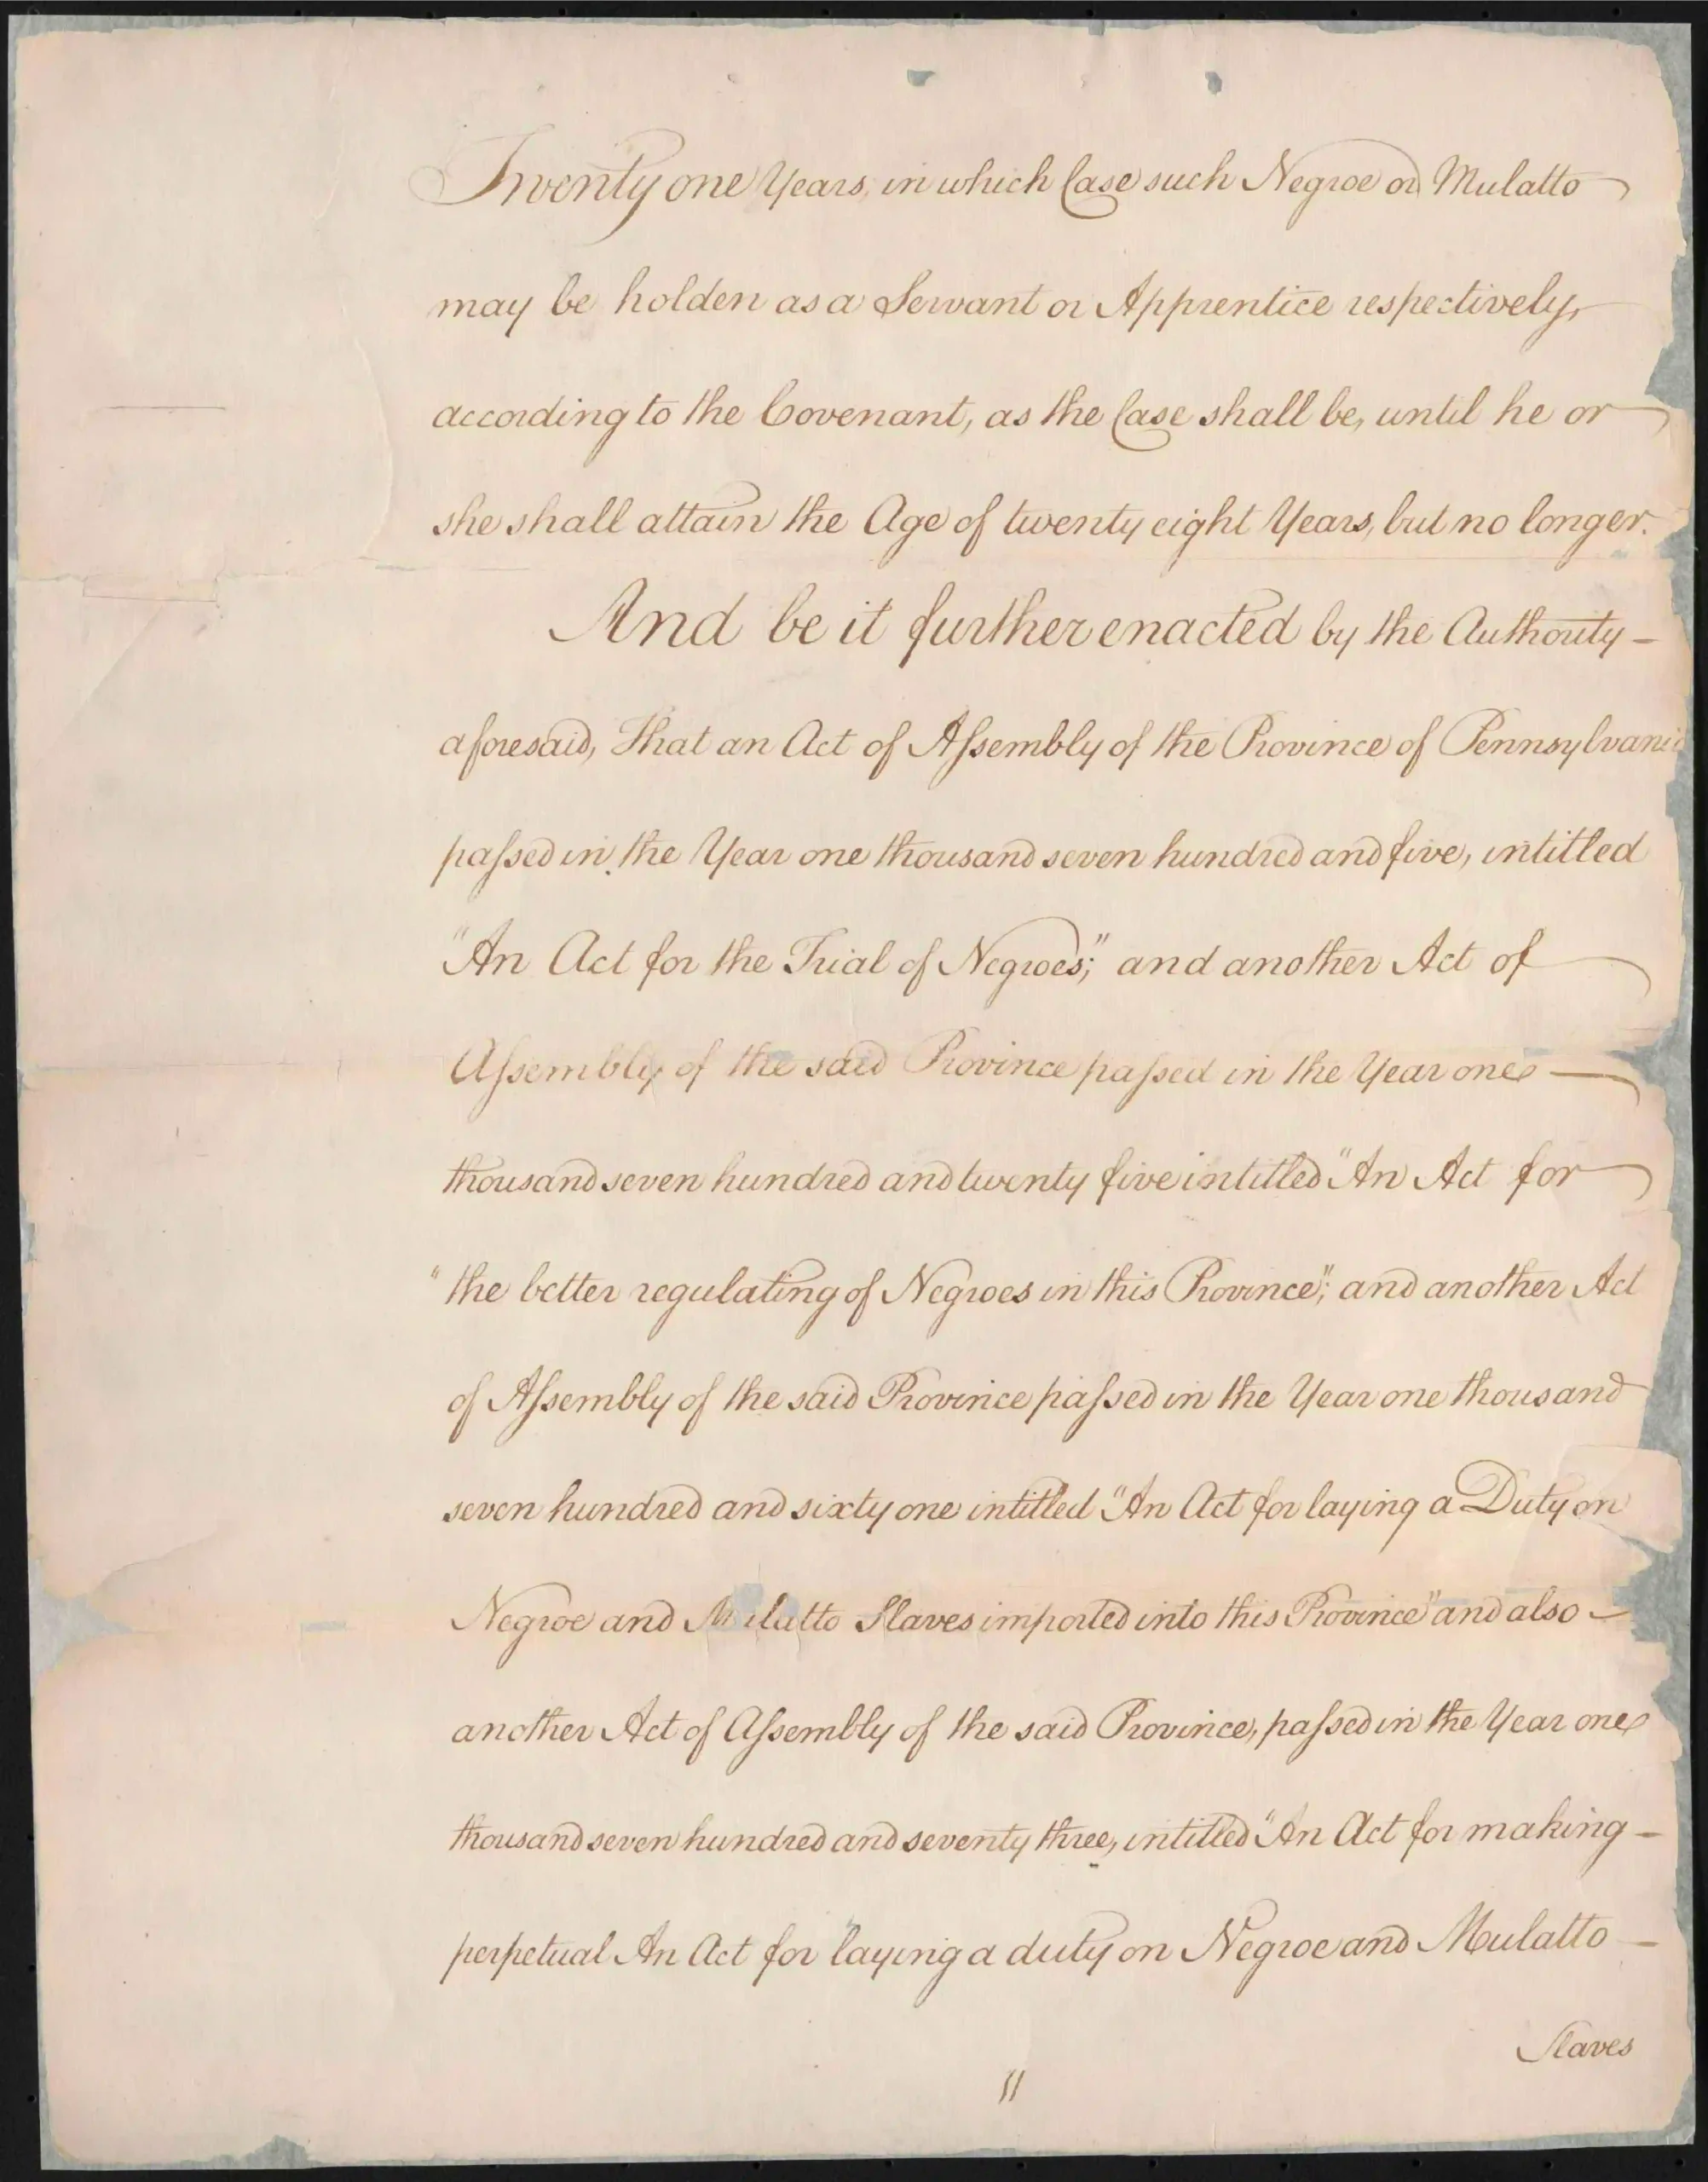 Twenty one Years, in which Case such Negroe or Mulatto
may be holden as a Servant or Apprentice respectively,
according to the Covenant, as the Case shall be, until he or
she shall attain the Age of twenty eight Years, but no longer.
And be it further enacted by the Authority -
aforesaid, That an Act of Assembly of the Province of Pennsylvania
passed in the Year one thousand seven hundred and five, intitled
"An Act for the Trial of Negroes;" and another Act of
Assembly of the said Province passed in the Year one
thousand seven hundred and twenty five intitled "An Act for
"the better regulating of Negroes in this Province"; and another Act
of Assembly of the said Province passed in the Year one thousand
seven hundred and sixty one intitled "An Act for laying a Duty on
Negroe and Mulatto Slaves imported into this Province" and also -
another Act of Assembly of the said Province, passed in the Year one
thousand seven hundred and seventy three, intitled "An Act for making -
perpetual An Act for "laying a duty on Negroe and Mulatto -
Slaves
11